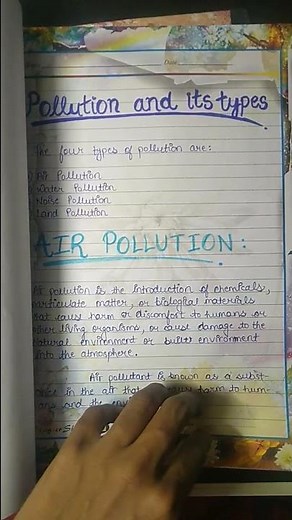 Date
Pollution and its types
The four types of pollution are:
Air Pollution
Water Pollution
Noise Pollution
Land Pollution
AIR POLLUTION:
Air pollution is the introduction of chemicals,
particulate matter, or biological materials
that cause harm or discomfort to humans or
other living organisms, or cause damage to the
natural environment or built environment
into the atmosphere.
Air pollutant is known as a subst-
ance in the air that harm to hum-
ans and the